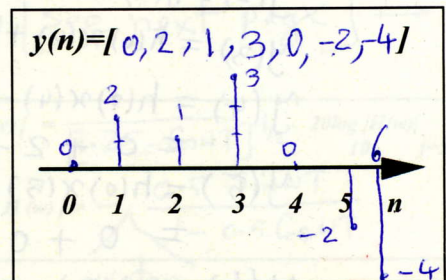 y(n)=[0, 2, 1, 3, 0, -2, -4]
3
2
1
0
0
6
0 1 2 3 4 5 n
-2
-4